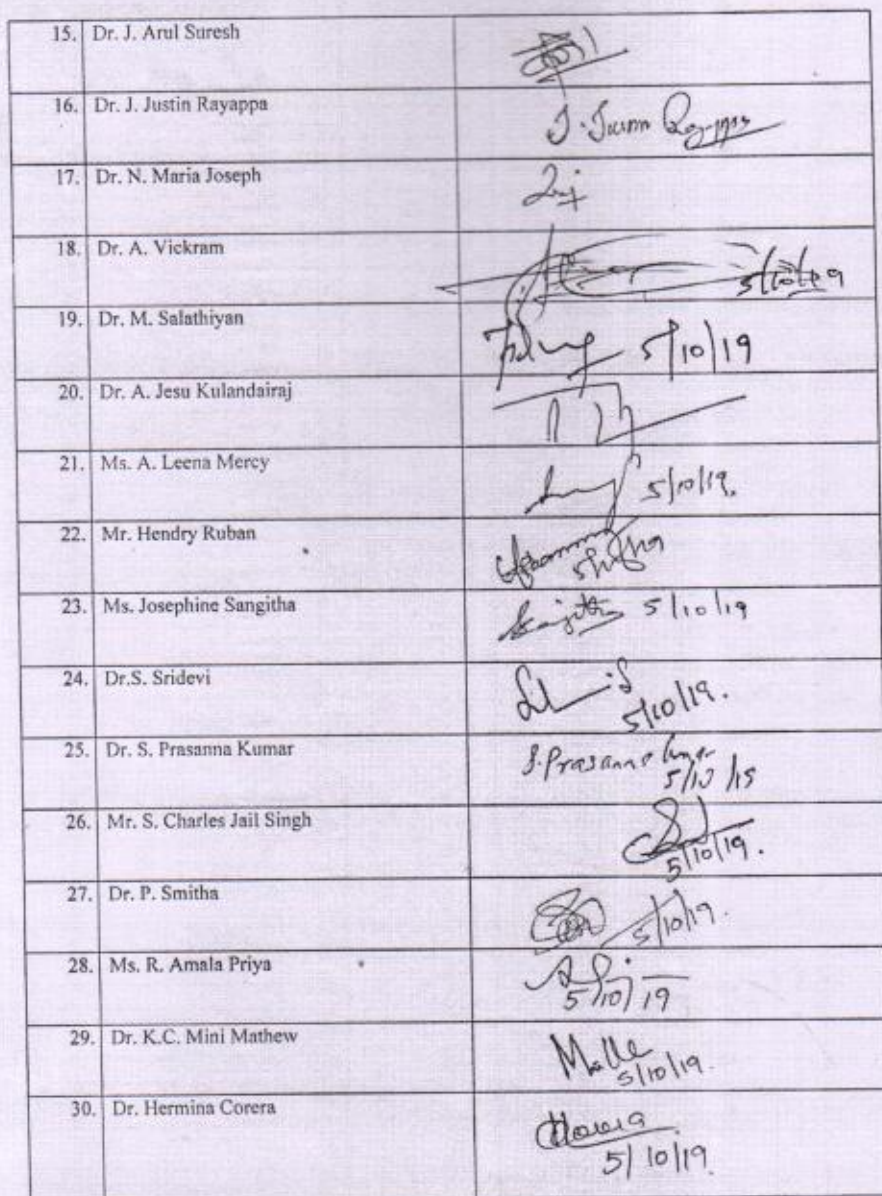 15. Dr. J. Arul Suresh
16. Dr. J. Justin Rayappa
17. Dr. N. Maria Joseph
18. Dr. A. Vickram 5/10/19
19. Dr. M. Salathiyan 5/10/19
20. Dr. A. Jesu Kulandairaj
21. Ms. A. Leena Mercy 5/10/19.
22. Mr. Hendry Ruban
23. Ms. Josephine Sangitha 5/10/19
24. Dr.S. Sridevi
5/10/19.
25. Dr. S. Prasanna Kumar S. Prasanna
26. Mr. S. Charles Jail Singh
5/10/19.
27. Dr. P. Smitha 5/10/19.
28. Ms. R. Amala Priya
5/10/19
29. Dr. K.C. Mini Mathew
5/10/19.
30. Dr. Hermina Corera
5/10/19.